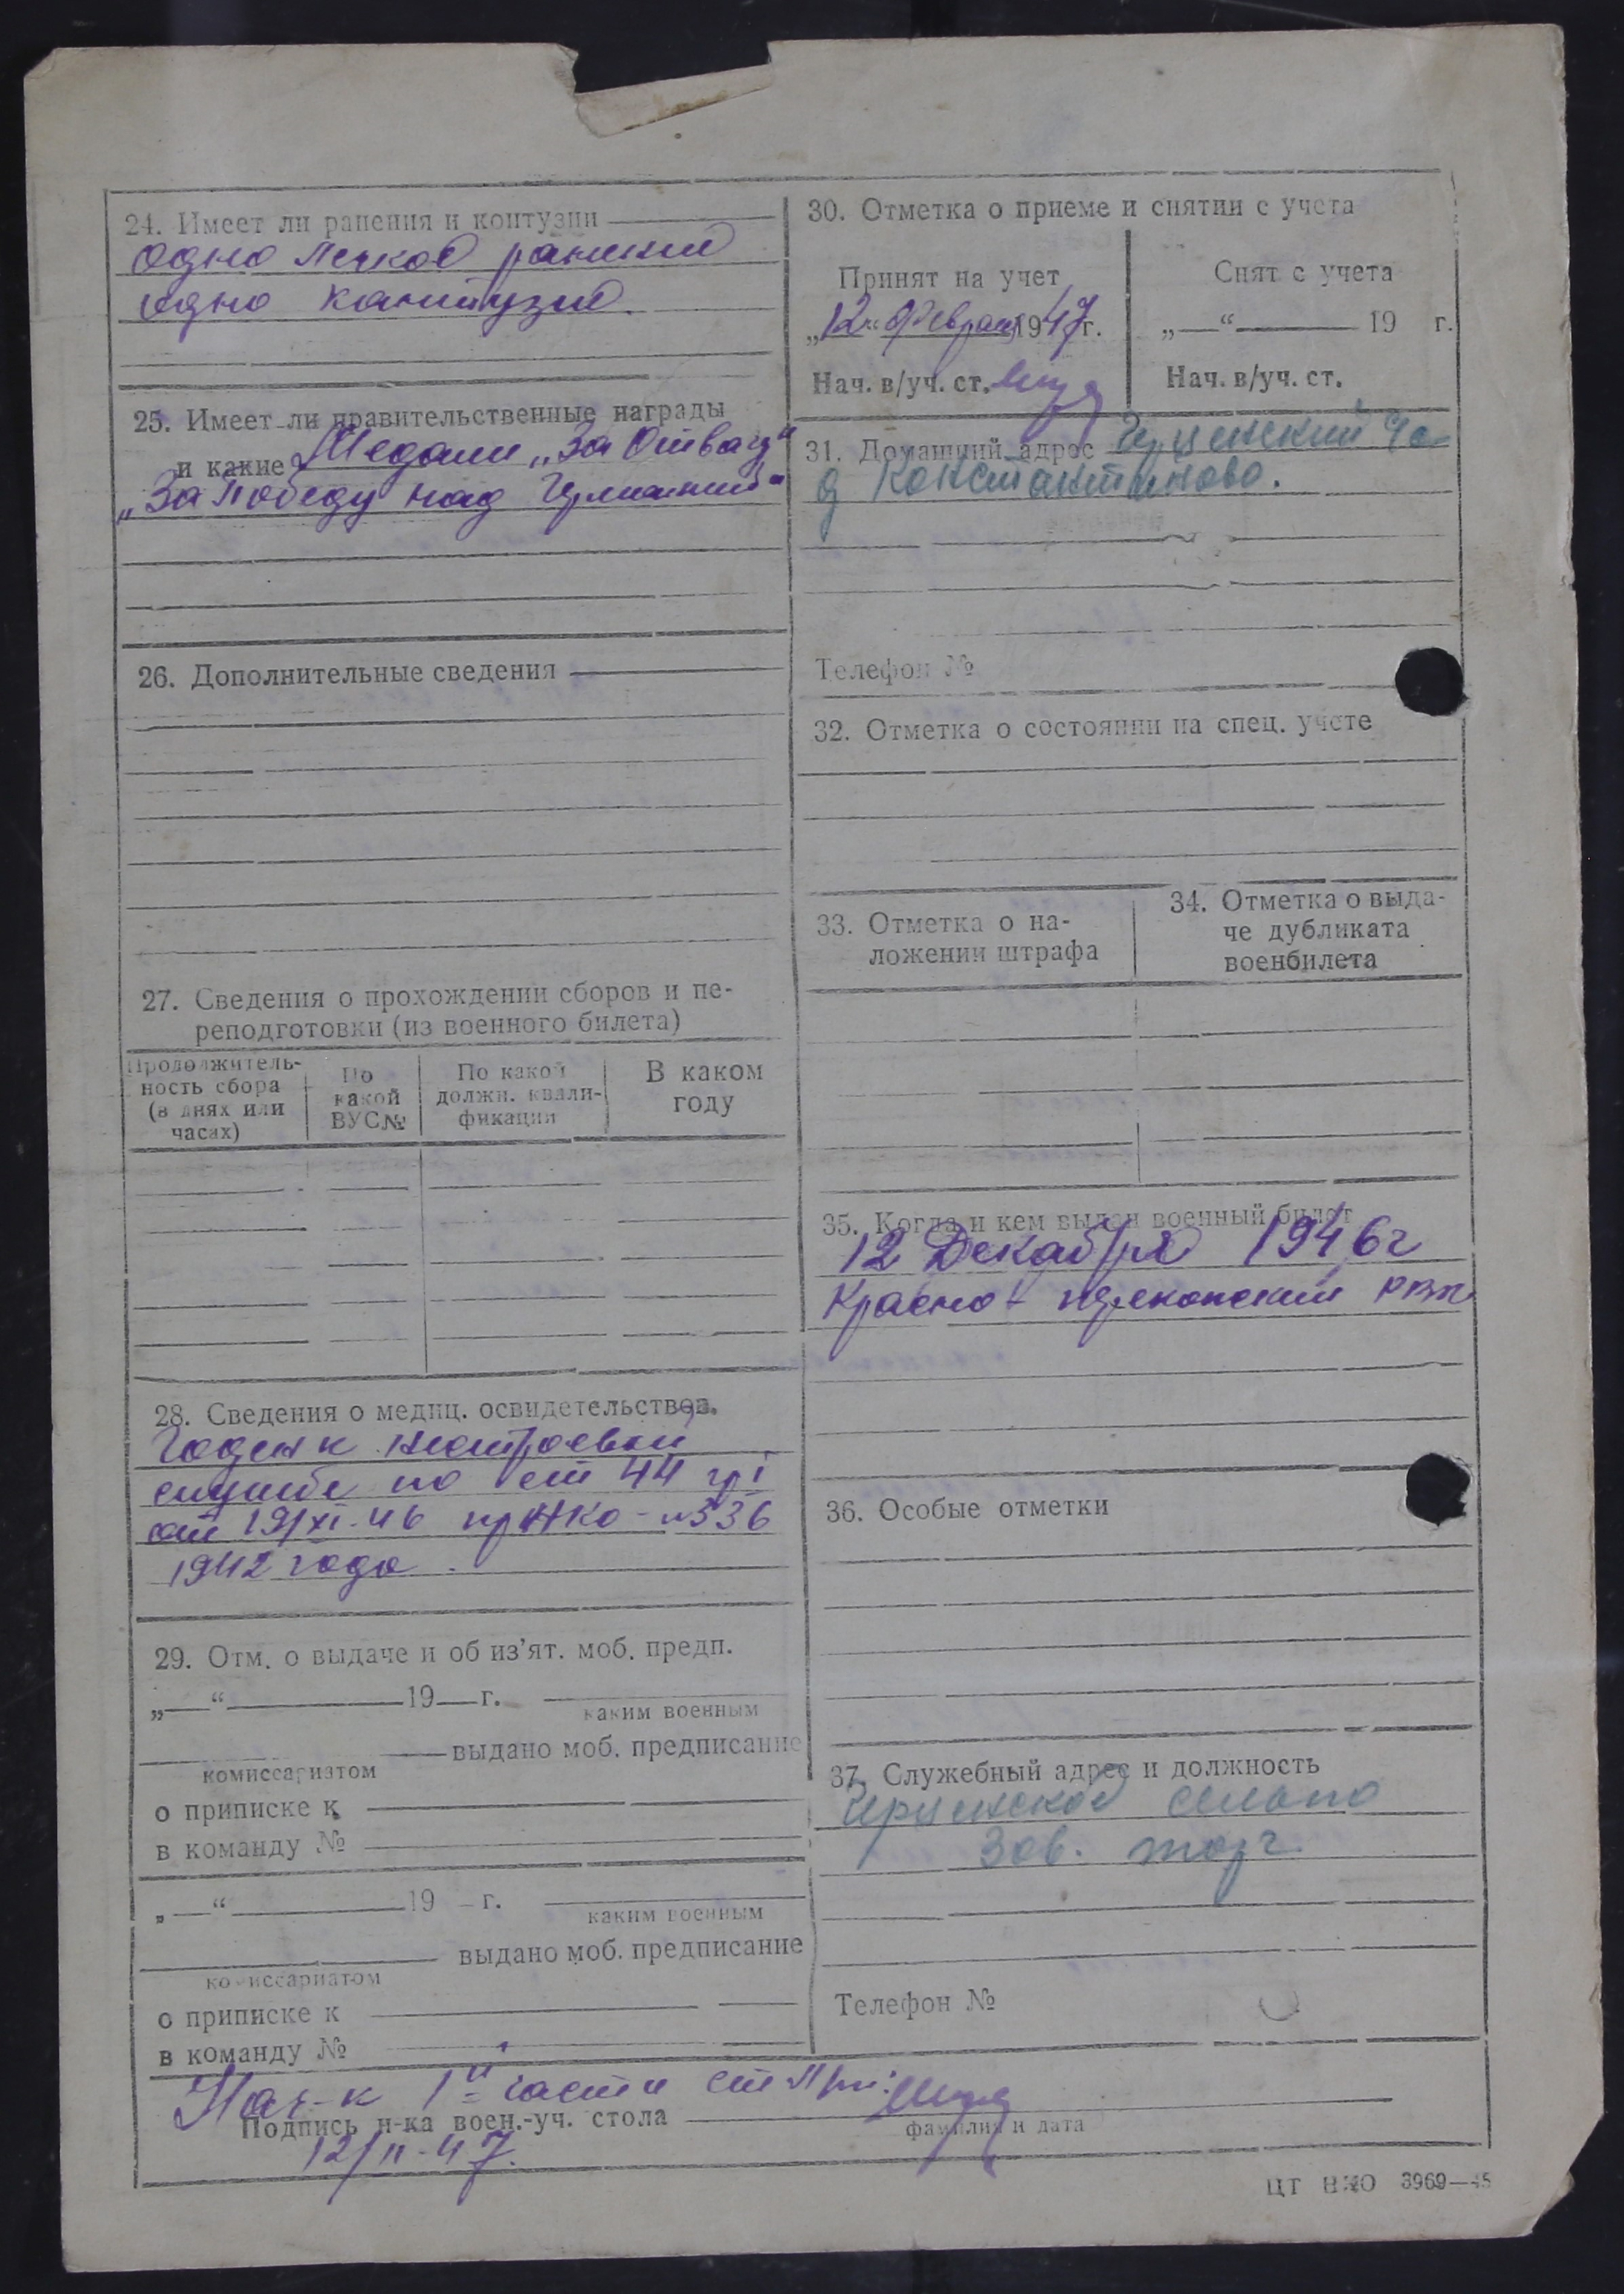 24. Имеет ли ранения и контузии
одно легкое ранение
одно кантузие.
25. Имеет ли правительственные награды
и какие Медали „За Отвагу“
„За победу над Германией“
26. Дополнительные сведения
27. Сведения о прохождении сборов и пе-
реподготовки (из военного билета)
Продолжитель-
ность сбора
(в днях или
часах)
По
какой
ВУС№
По какой
должн. квали-
фикации
В каком
году
28. Сведения о медиц. освидетельствов.
Годен к нестроевой
службе по ст 44 гр I
от 19/XI-46 пр НКО - №336
1942 года.
29. Отм. о выдаче и об из’ят. моб. предп.
„ “ 19 г.
каким военным
выдано моб. предписание
комиссариатом
о приписке к
в команду №
„ “ 19 г.
каким военным
выдано моб. предписание
комиссариатом
о приписке к
в команду №
30. Отметка о приеме и снятии с учета
Принят на учет
„12“ Февраля 1947г.
Нач. в/уч. ст.
Снят с учета
„ “ 19 г.
Нач. в/уч. ст.
31. Домашний адрес
д Константиново.
Телефон №
32. Отметка о состоянии на спец. учете
33. Отметка о на-
ложении штрафа
34. Отметка о выда-
че дубликата
военбилета
35. Когда и кем выдан военный билет
12 Декабря 1946г
Красно-перекопский РВК
36. Особые отметки
37. Служебный адрес и должность
сельпо
Зав. торг.
Телефон №
Нач-к 1й части ст
Подпись н-ка воен.-уч. стола
фамилия и дата
12/II-47.
ЦТ НКО 3969—45